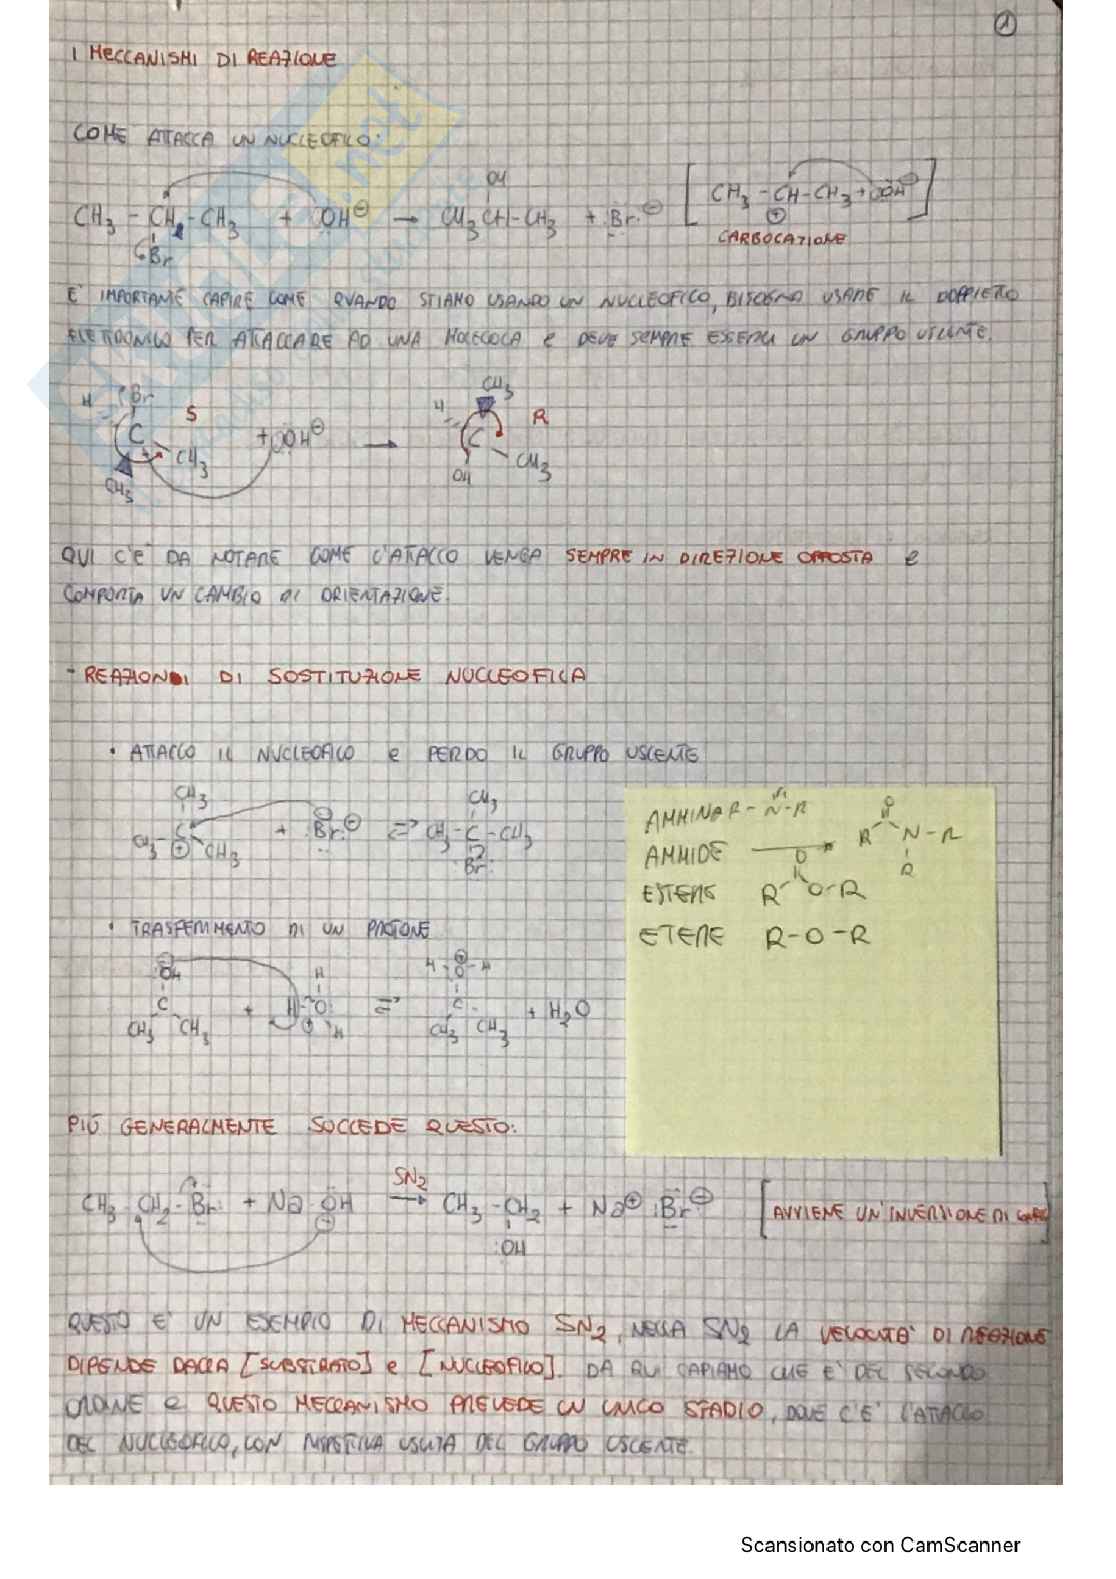 1
I MECCANISMI DI REAZIONE
COME ATTACCA UN NUCLEOFILO:
CH3 - CH2 - CH3 + OH⊖ → CH3 CH - CH3 + Br⊖ [CH3 - CH - CH3 + OH⊖]
Br
OH
⊕
CARBOCAZIONE
E' IMPORTANTE CAPIRE COME QUANDO STIAMO USANDO UN NUCLEOFILO, BISOGNO USARE IL DOPPIETO
ELETTRONICO PER ATTACCARE AD UNA MOLECOLA E DEVE SEMPRE ESSERCI UN GRUPPO USCENTE.
H Br S C CH3 CH3 + OH⊖ → H CH3 R C OH CH3
QUI C'È DA NOTARE COME L'ATTACCO VENGA SEMPRE IN DIREZIONE OPPOSTA E
COMPORTA UN CAMBIO DI ORIENTAZIONE.
- REAZIONDI DI SOSTITUZIONE NUCLEOFILA
• ATTACCO IL NUCLEOFILO E PERDO IL GRUPPO USCENTE
CH3
CH3 - C ⊕ CH3 + Br⊖ ⇌ CH3 - C - CH3
CH3
Br
AMMINA R - N - R
AMMIDE → R O N - R
R
ESTERE R O O - R
ETERE R - O - R
• TRASFERIMENTO DI UN PROTONE
OH H H - O - H
C + H - O: ⇌ C + H2O
CH3 CH3 ⊕ H CH3 CH3
PIÙ GENERALMENTE SUCCEDE QUESTO:
CH3 - CH2 - Br: + Na OH SN2 → CH3 - CH2 + Na⊕ :Br:⊖ [AVVIENE UN'INVERSIONE DI
:OH
QUESTO E' UN ESEMPIO DI MECCANISMO SN2, NELLA SN2 LA VELOCITA' DI REAZIONE
DIPENDE DALLA [SUBSTRATO] E [NUCLEOFILO]. DA QUI CAPIAMO CHE E' DEL SECONDO
ORDINE E QUESTO MECCANISMO PREVEDE UN UNICO STADIO, DOVE C'È L'ATTACCO
DEL NUCLEOFILO, CON RISPETTIVA USCITA DEL GRUPPO USCENTE.
Scansionato con CamScanner